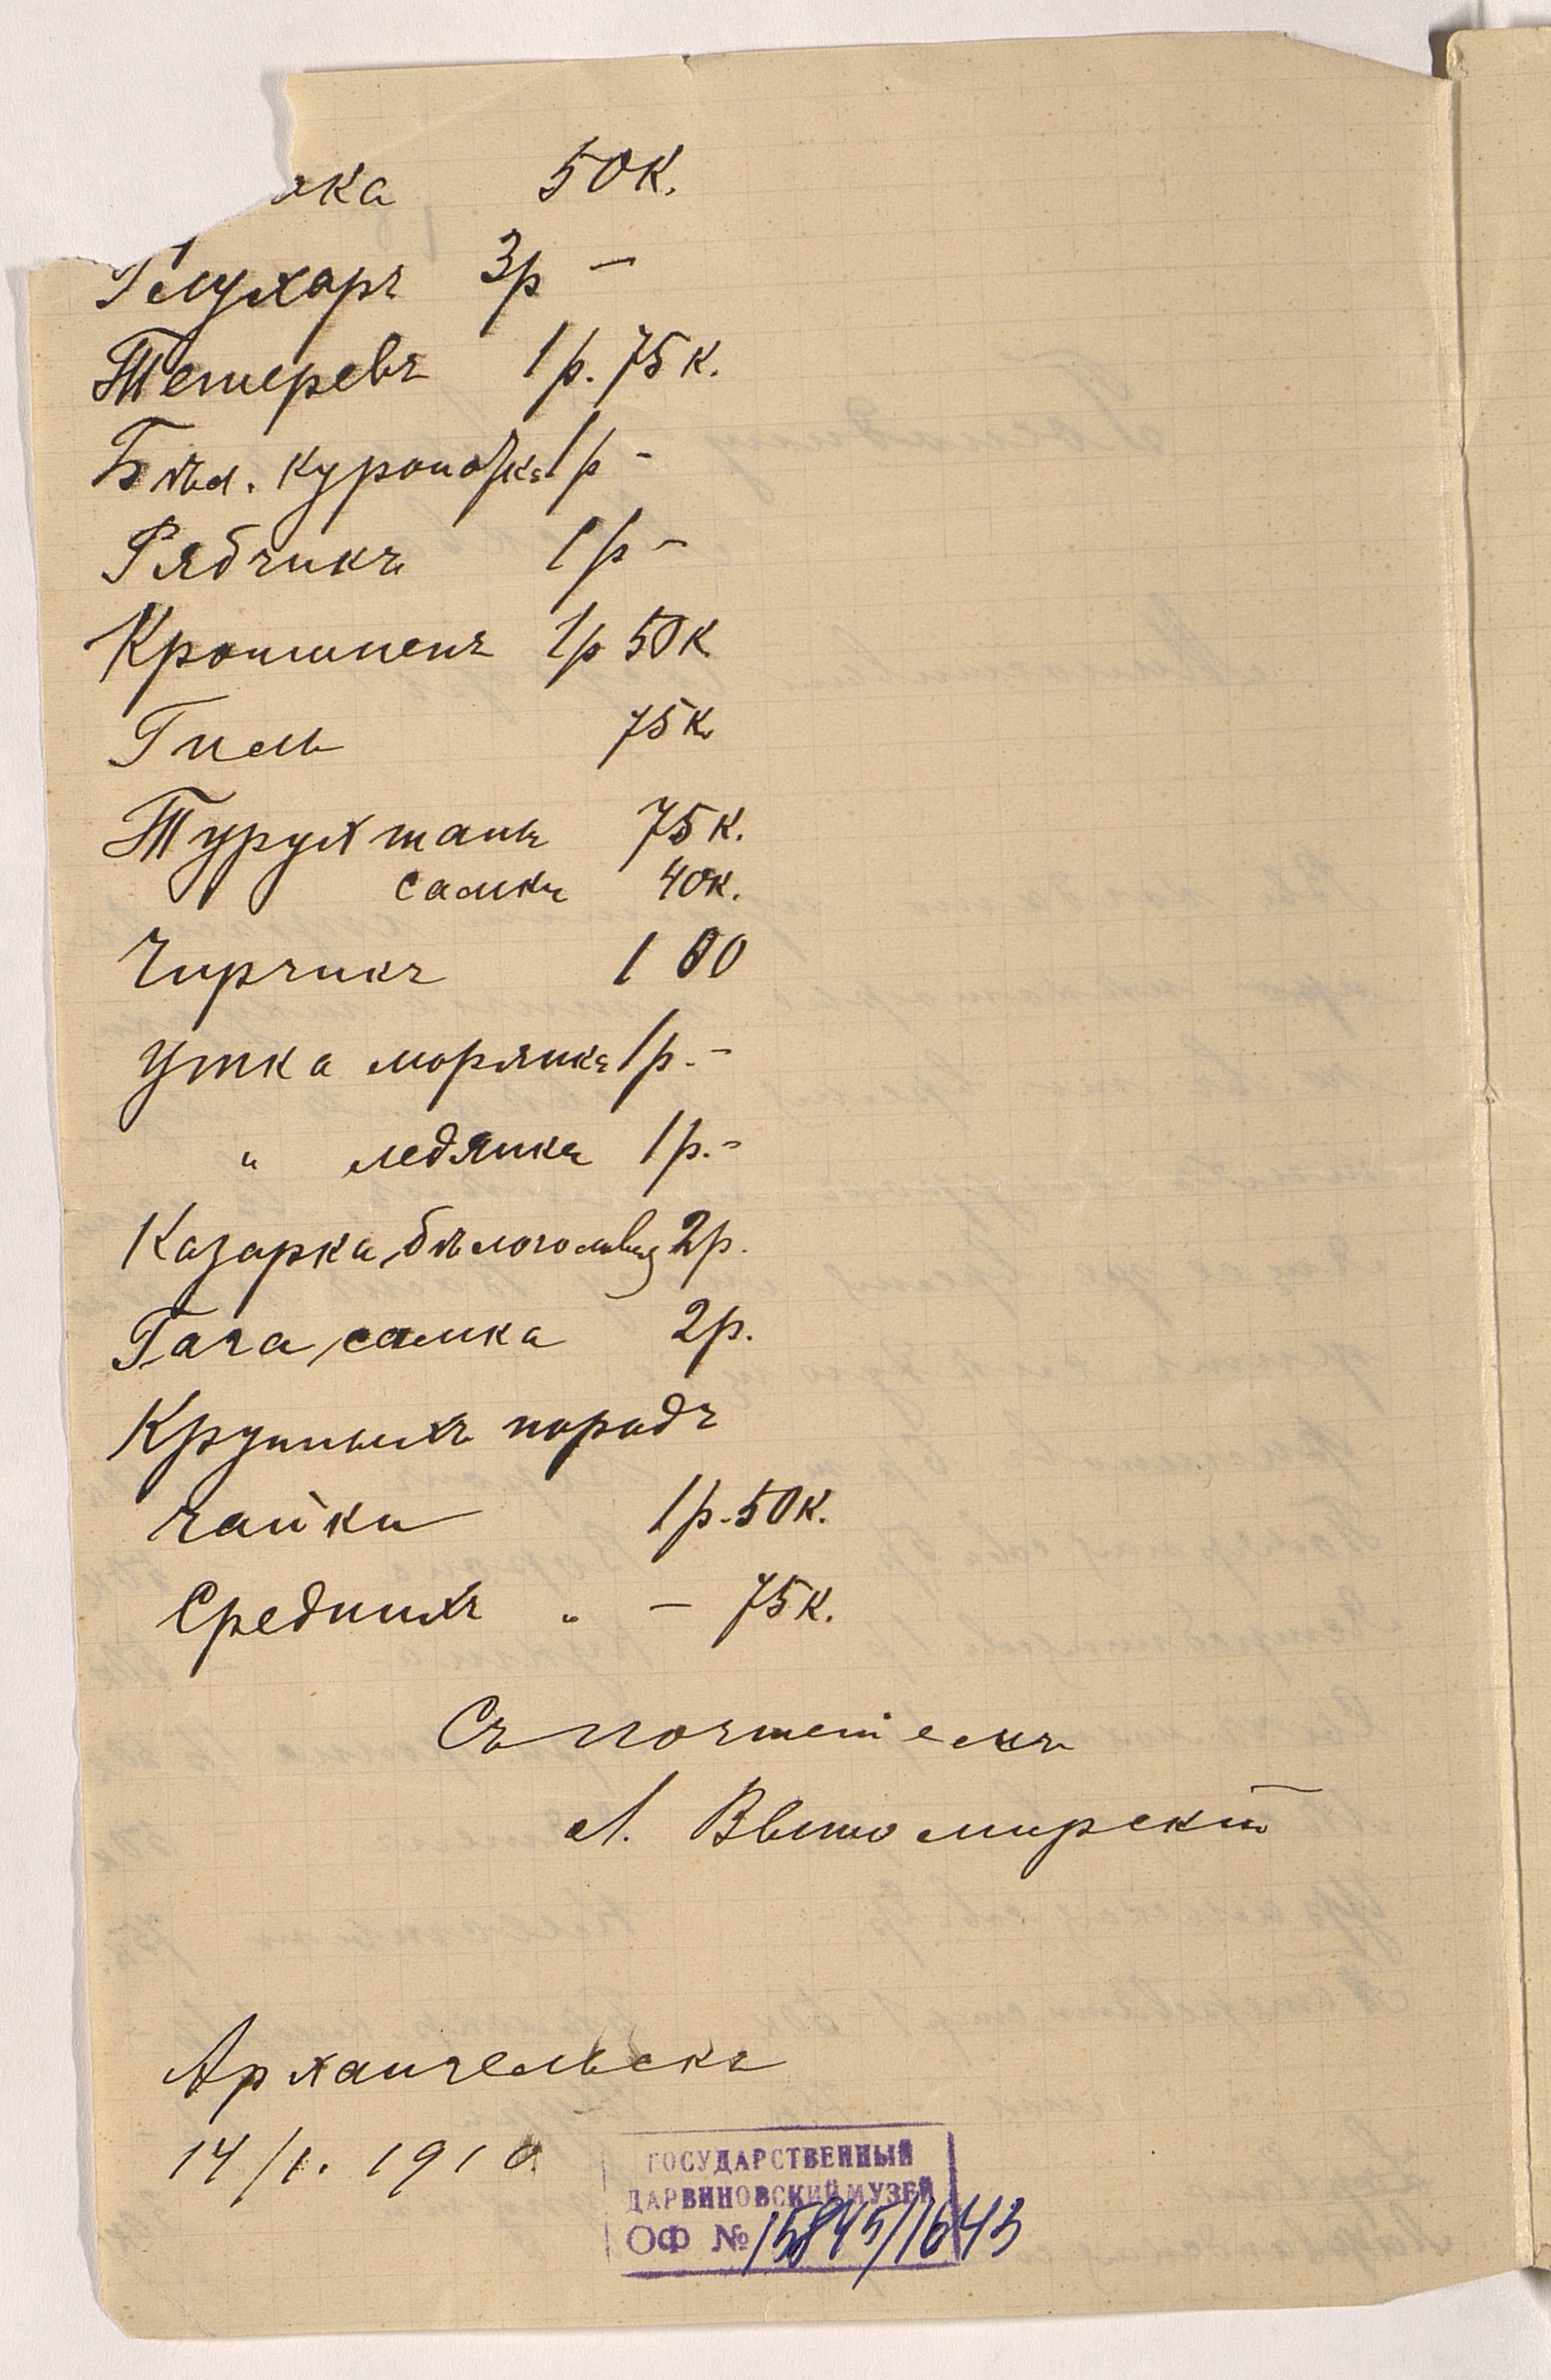 ка 50к.
Глухарь 3р –
Тетеревъ 1р. 75к.
Бѣл. куропатка 1р –
Рябчикъ 1р –
Кроншнепъ 1р 50к
75к
Турухтанъ 75к.
самка 40к.
Чирчикъ 1 00
Утка морянка 1р. –
" ледянка 1р. –
Казарка бѣлоголовая 2р.
Гага, самка 2р.
Крупныхъ породъ
чайки 1р. 50к.
Среднихъ " – 75к.
Съ почтеніемъ
А. Витомирскій
Архангельскъ
14/1. 1910
ГОСУДАРСТВЕННЫЙ
ДАРВИНОВСКИЙ МУЗЕЙ
ОФ № 15845/1643